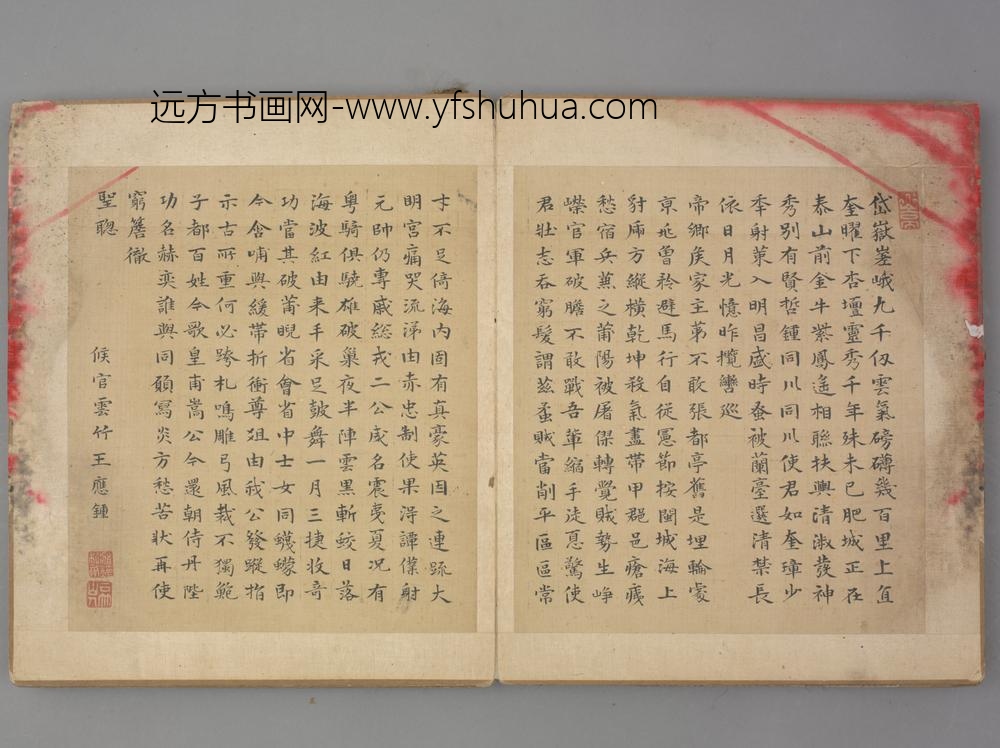 远方书画网-www.yfshuhua.com
岱嶽崒峨九千仭雲氣磅礴幾百里上直
奎曜下杏壇靈秀千年殊未已肥城正在
泰山前金牛紫鳳遙相聯扶輿清淑發神
秀別有賢哲鍾同川同川使君如奎璋少
年射策入明昌盛時蚤被蘭臺選清禁長
依日月光憶昨攬轡巡
帝鄉矦家主第不敢張都亭舊是埋輪處
京兆曾矜避馬行自從憲節按閩城海上
豺乕方縱橫乾坤殺氣盡帶甲郡邑瘡痍
愁宿兵蕉之莆陽被屠傑轉覺賊勢生崢
嶸官軍破膽不敢戰吾軰縮手徒息驚使
君壯志吞窮髮謂茲蚤賊當削平區區常
才不足倚海內固有真豪英因之連䟽大
明宮痛哭流涕由赤忠制使果淂譚僕射
元帥仍專戚総戎二公威名震夷夏况有
粤騎俱驍雄破巢夜半陣雲黒斬蛟日落
海波紅由来手采足皷舞一月三捷收奇
功當其破莆睨省會省中士女同蠛蠓即
今含哺與緩帶折衝尊俎由我公發蹤指
示古所重何必跨札鳴雕弓風裁不獨鮑
子都百姓今歌皇甫嵩公今還朝侍丹陛
功名赫奕誰與同願寫炎方愁苦狀再使
窮簷徹
聖聰
候官雲竹王應鍾